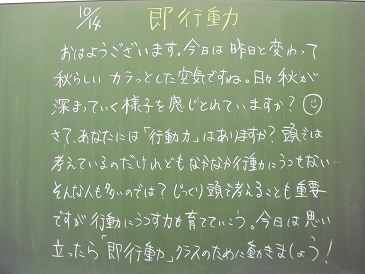 10/14 即行動
おはようございます。今日は昨日と変わって
秋らしいカラッとした空気ですね。日々秋が
深まっていく様子を感じとれていますか？
さて、あなたには「行動力」はありますか？頭では
考えているのだけれどもなかなか行動にうつせない…
そんな人も多いのでは？じっくり頭で考えることも重要
ですが行動にうつす力も育てていこう。今日は思い
立ったら「即行動」クラスのために動きましょう！